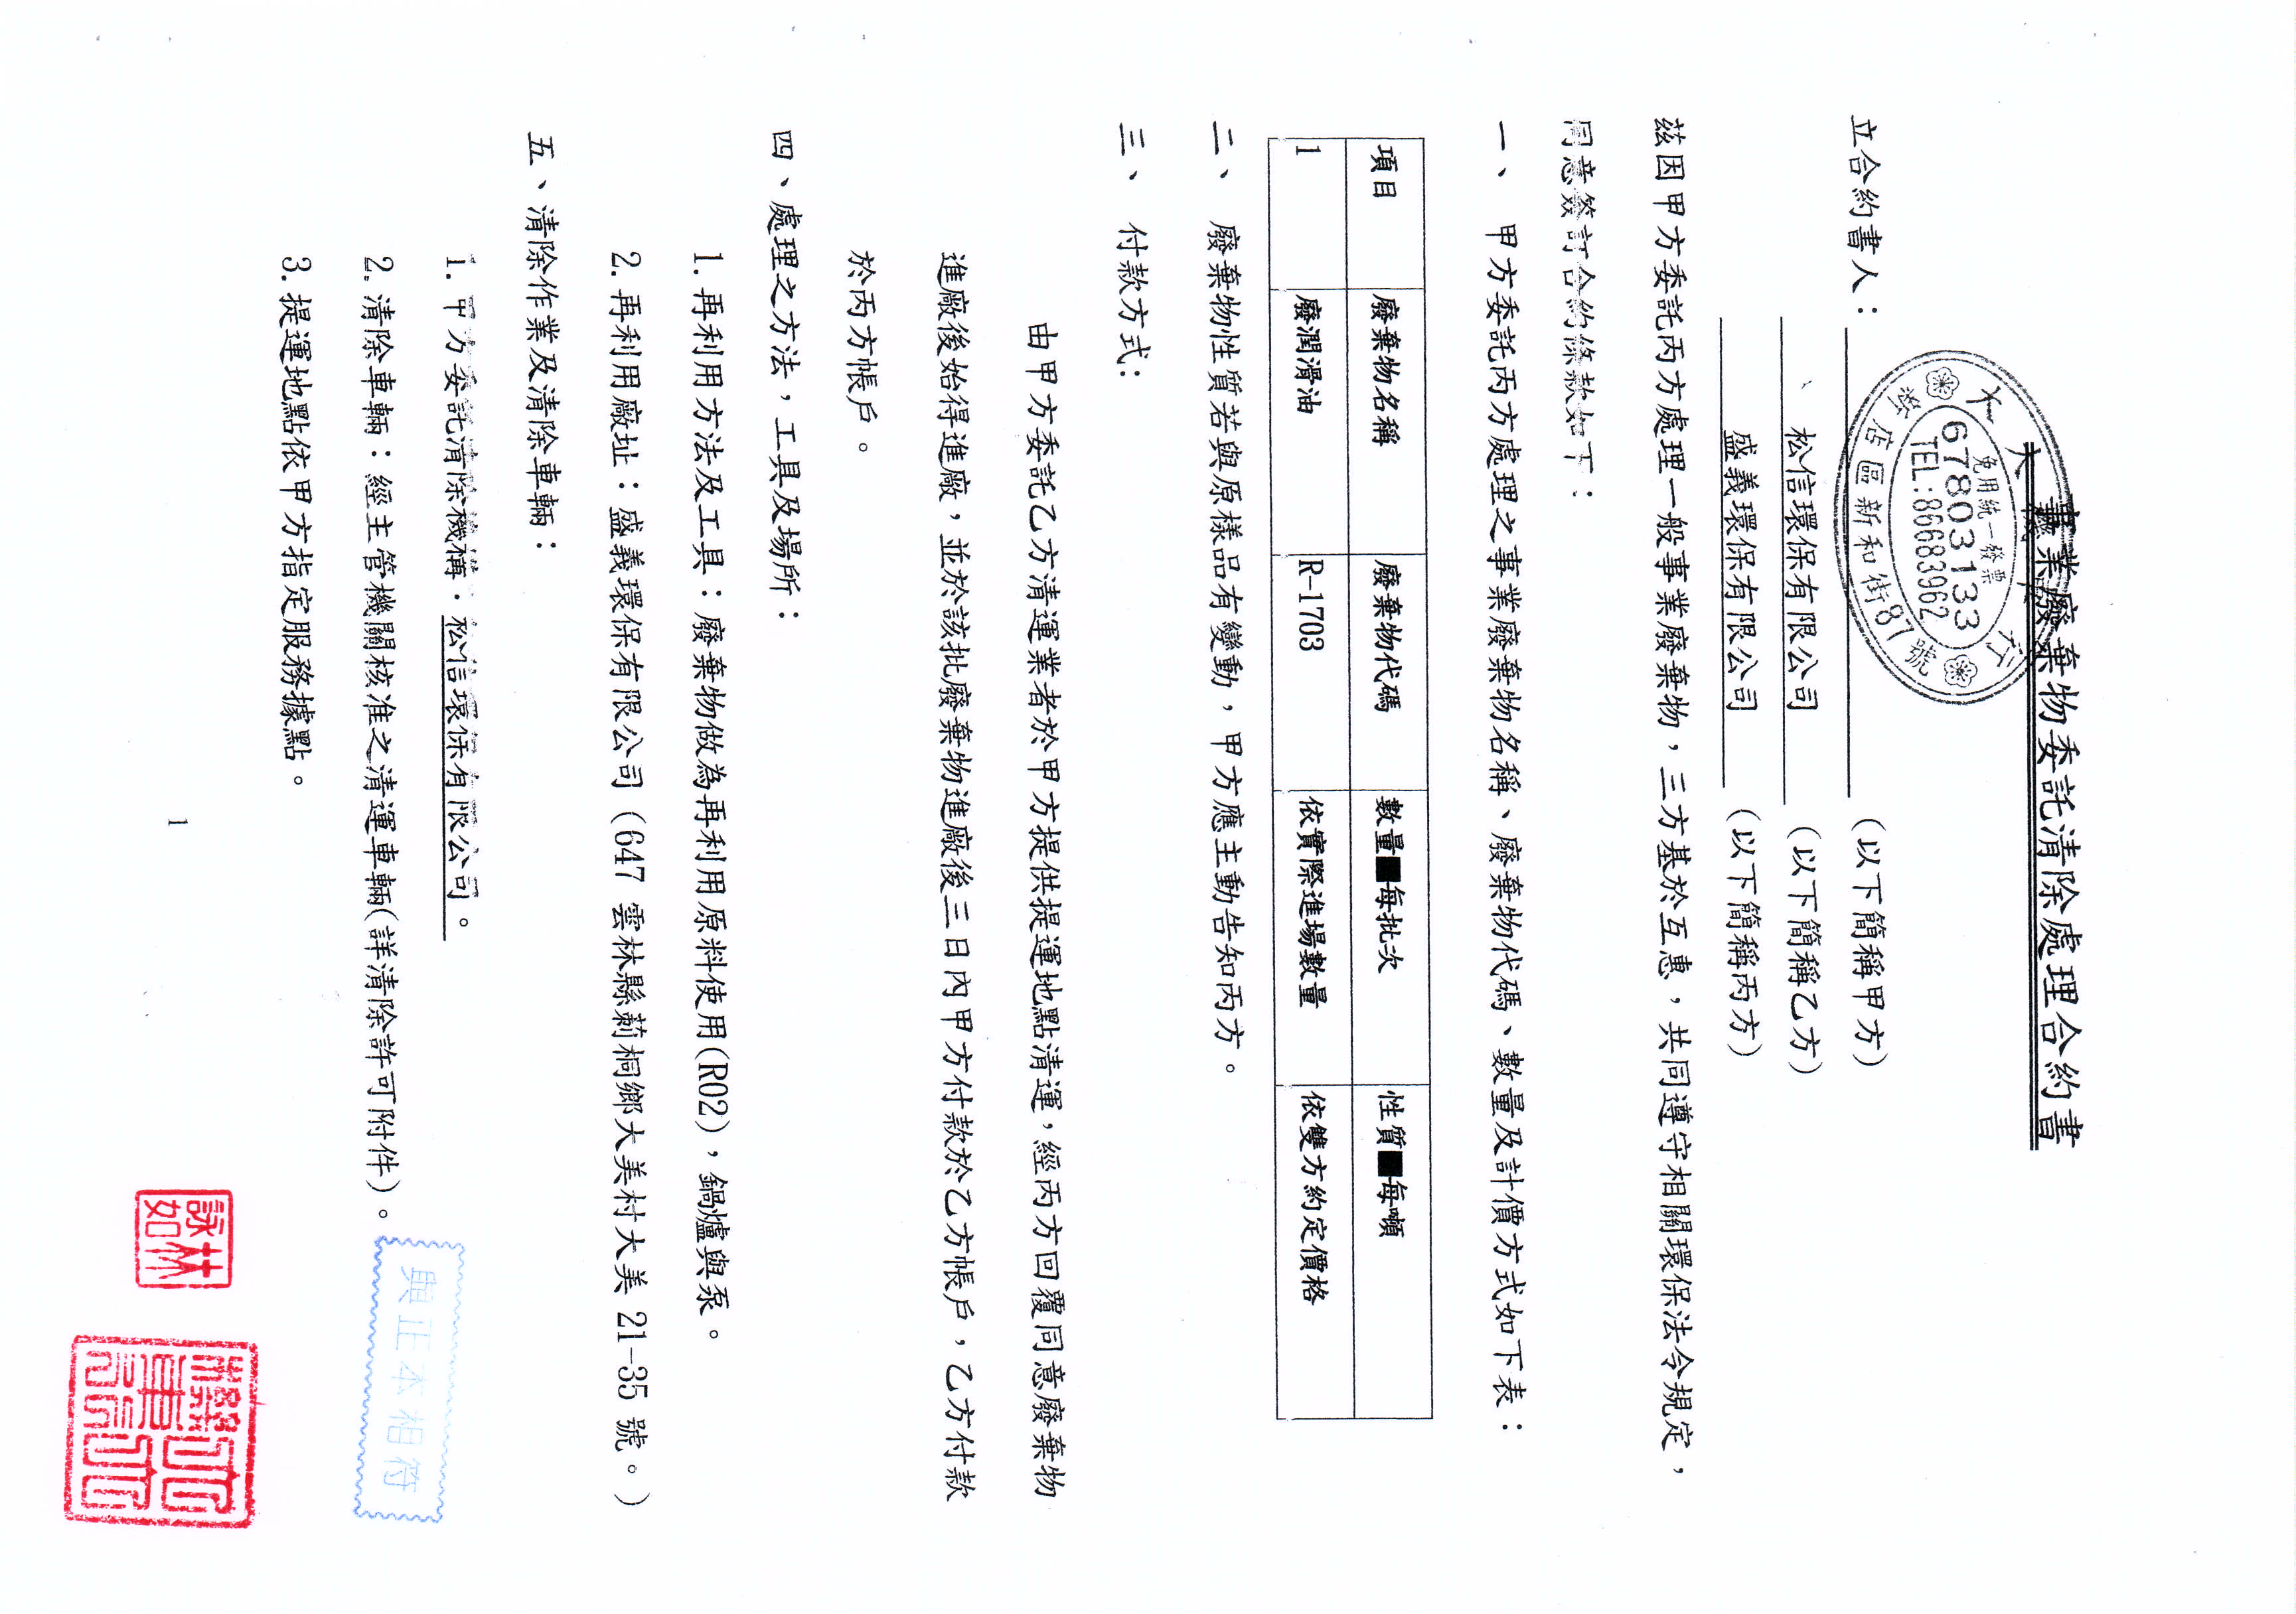 事業廢棄物委託清除處理合約書
免用統一發票
67803133
TEL:86683962
店區新和街87號
立合約書人：
(以下簡稱甲方)
松信環保有限公司 (以下簡稱乙方)
盛義環保有限公司 (以下簡稱丙方)
茲因甲方委託丙方處理一般事業廢棄物，三方基於互惠，共同遵守相關環保法令規定，
同意簽訂合約條款如下：
一、 甲方委託丙方處理之事業廢棄物名稱、廢棄物代碼、數量及計價方式如下表：
項目 廢棄物名稱 廢棄物代碼 數量■每批次 性質■每噸
1 廢潤滑油 R-1703 依實際進場數量 依雙方約定價格
二、 廢棄物性質若與原樣品有變動，甲方應主動告知丙方。
三、 付款方式：
由甲方委託乙方清運業者於甲方提供提運地點清運，經丙方回覆同意廢棄物
進廠後始得進廠，並於該批廢棄物進廠後三日內甲方付款於乙方帳戶，乙方付款
於丙方帳戶。
四、處理之方法，工具及場所：
1.再利用方法及工具：廢棄物做為再利用原料使用(R02)，鍋爐與泵。
2.再利用廠址：盛義環保有限公司（647 雲林縣莿桐鄉大美村大美 21-35 號。）
五、清除作業及清除車輛：
1.甲方委託清除機構：松信環保有限公司。
2.清除車輛：經主管機關核准之清運車輛(詳清除許可附件)。
3.提運地點依甲方指定服務據點。
與正本相符
林詠如
1